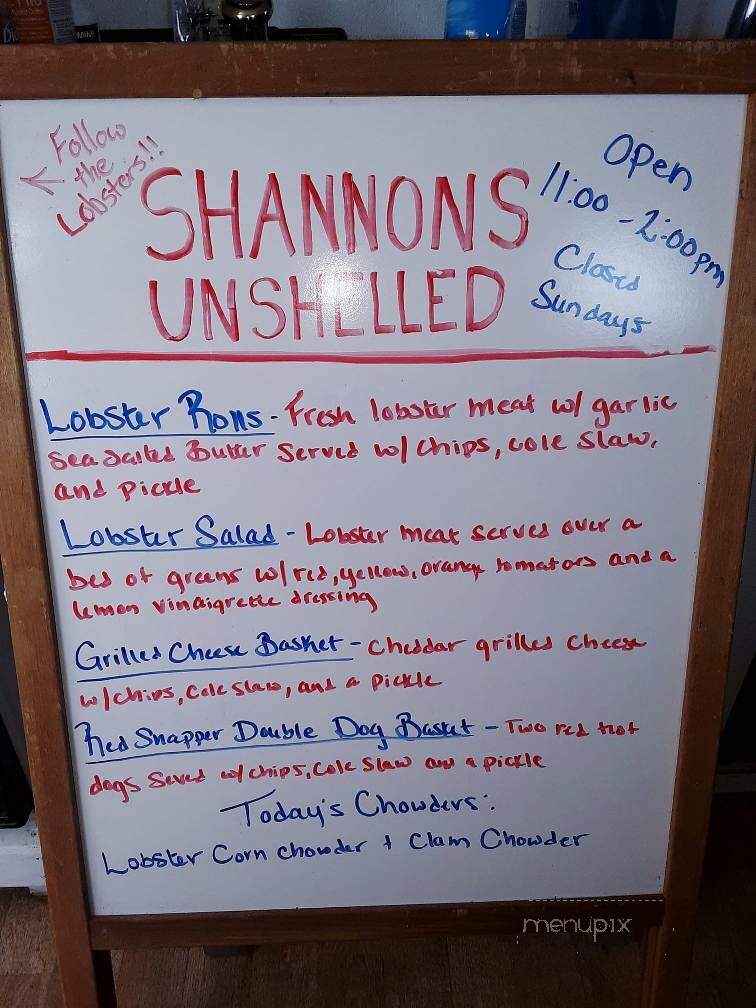 Follow
the
Lobsters!!
SHANNONS
UNSHELLED
Open
11:00 - 2:00pm
Closed
Sundays
Lobster Rolls - Fresh lobster meat w/ garlic
sea salted Butter served w/ chips, cole slaw,
and pickle
Lobster Salad - Lobster meat served over a
bed of greens w/ red, yellow, orange tomatoes and a
lemon vinaigrette dressing
Grilled Cheese Basket - Cheddar grilled cheese
w/ chips, Cole slaw, and a pickle
Red Snapper Double Dog Basket - Two red hot
dogs Served w/ chips, Cole slaw and a pickle
Today's Chowders:
Lobster Corn chowder + Clam Chowder
menupix